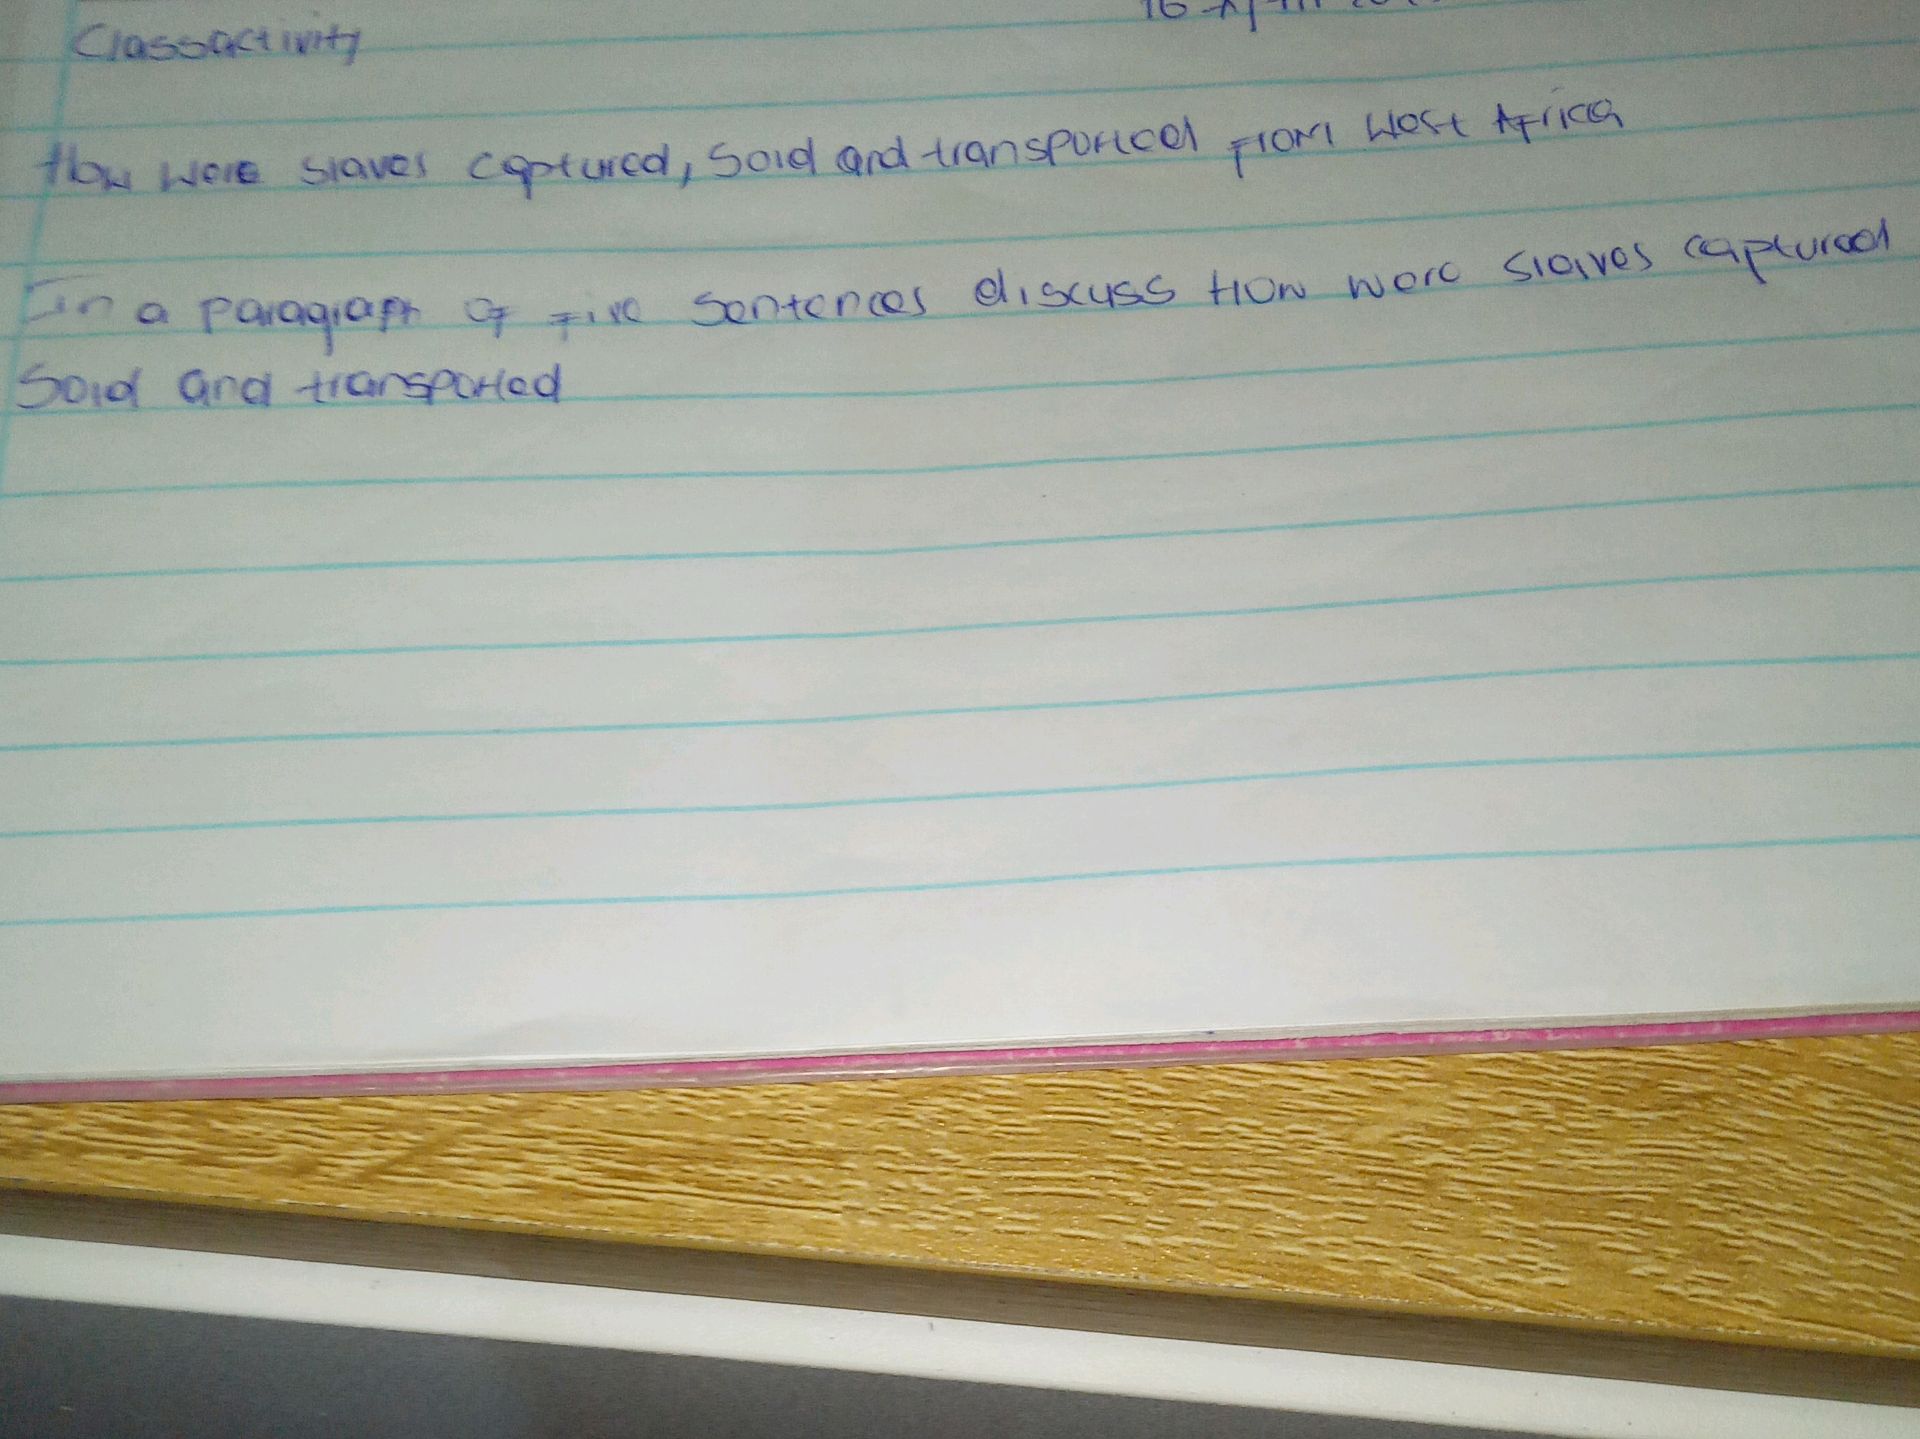 Classactivity
How were slaves captured, Sold and transported From West Africa
In a paragraph of five Sentences discuss How were slaves captured
Sold and transported